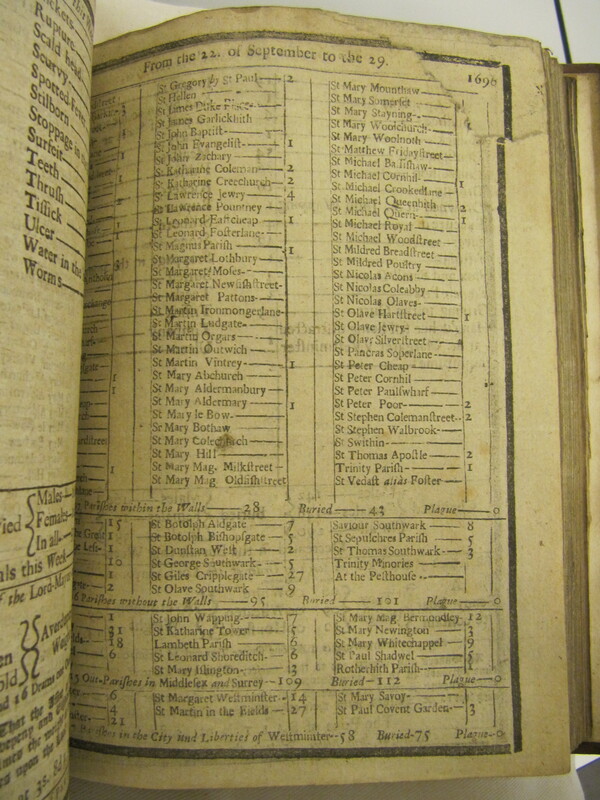 Rupture
Scald head
Scurvy
Spotted Fever
Stilborn
Stoppage in
Surfeit
Teeth
Thrush
Tissick
Ulcer
Water in the
Worms
Males
Females
In all
this Week
the Lord-Mayor
From the 22. of September to the 29. 1696
St Gregory by St Paul 2
St Hellen
St James Duke Place
St James Garlickhith
St John Baptist
St John Evangelist 1
St John Zachary
St Katharine Coleman 2
St Katharine Creechurch 2
St Lawrence Jewry 4
St Lawrence Pountney
St Leonard Eastcheap 1
St Leonard Fosterlane
St Magnus Parish
St Margaret Lothbury 1
St Margaret Moses
St Margaret Newfishstreet
St Margaret Pattons
St Martin Ironmongerlane
St Martin Ludgate
St Martin Orgars
St Martin Outwich
St Martin Vintrey 1
St Mary Abchurch
St Mary Aldermanbury
St Mary Aldermary 1
St Mary le Bow
St Mary Bothaw
St Mary Colechurch
St Mary Hill
St Mary Mag. Milkstreet
St Mary Mag. Oldfishstreet
St Mary Mounthaw
St Mary Somerset
St Mary Stayning
St Mary Woolchurch 1
St Mary Woolnoth
St Matthew Fridaystreet
St Michael Bassishaw
St Michael Cornhil
St Michael Crookedlane 1
St Michael Queenhith 2
St Michael Quern 1
St Michael Royal
St Michael Woodstreet
St Mildred Breadstreet
St Mildred Poultry
St Nicolas Acons
St Nicolas Coleabby
St Nicolas Olaves
St Olave Hartstreet 1
St Olave Jewry
St Olave Silverstreet
St Pancras Soperlane
St Peter Cheap 1
St Peter Cornhil
St Peter Paulswharf
St Peter Poor 2
St Stephen Colemanstreet 2
St Stephen Walbrook
St Swithin
St Thomas Apostle 2
Trinity Parish 1
St Vedast alias Foster
Parishes within the Walls 28 Buried 43 Plague 0
St Botolph Aldgate 7
St Botolph Bishopsgate 5
St Dunstan West 2
St George Southwark 5
St Giles Cripplegate 27
St Olave Southwark 9
Saviour Southwark 8
St Sepulchres Parish 5
St Thomas Southwark 3
Trinity Minories
At the Pesthouse
Parishes without the Walls 95 Buried 101 Plague 0
St John Wapping 7
St Katharine Tower 5
Lambeth Parish 6
St Leonard Shoreditch 6
St Mary Islington 3
St Mary Mag. Bermondsey 12
St Mary Newington 3
St Mary Whitechappel 9
St Paul Shadwel 5
Rotherhith Parish
Out-Parishes in Middlesex and Surrey 109 Buried 112 Plague 0
St Margaret Westminster 14
St Martin in the Fields 27
St Mary Savoy
St Paul Covent Garden 3
Parishes in the City and Liberties of Westminster 58 Buried 75 Plague 0